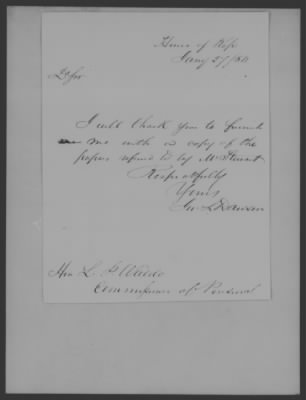 House of Reps
Jany 27/54
Dr Sir
I will thank you to furnish
me with a copy of the
papers refered to by Mr Stuart
Respectfully
Yours
Hon L P Waldo
Commissioner of Pensions